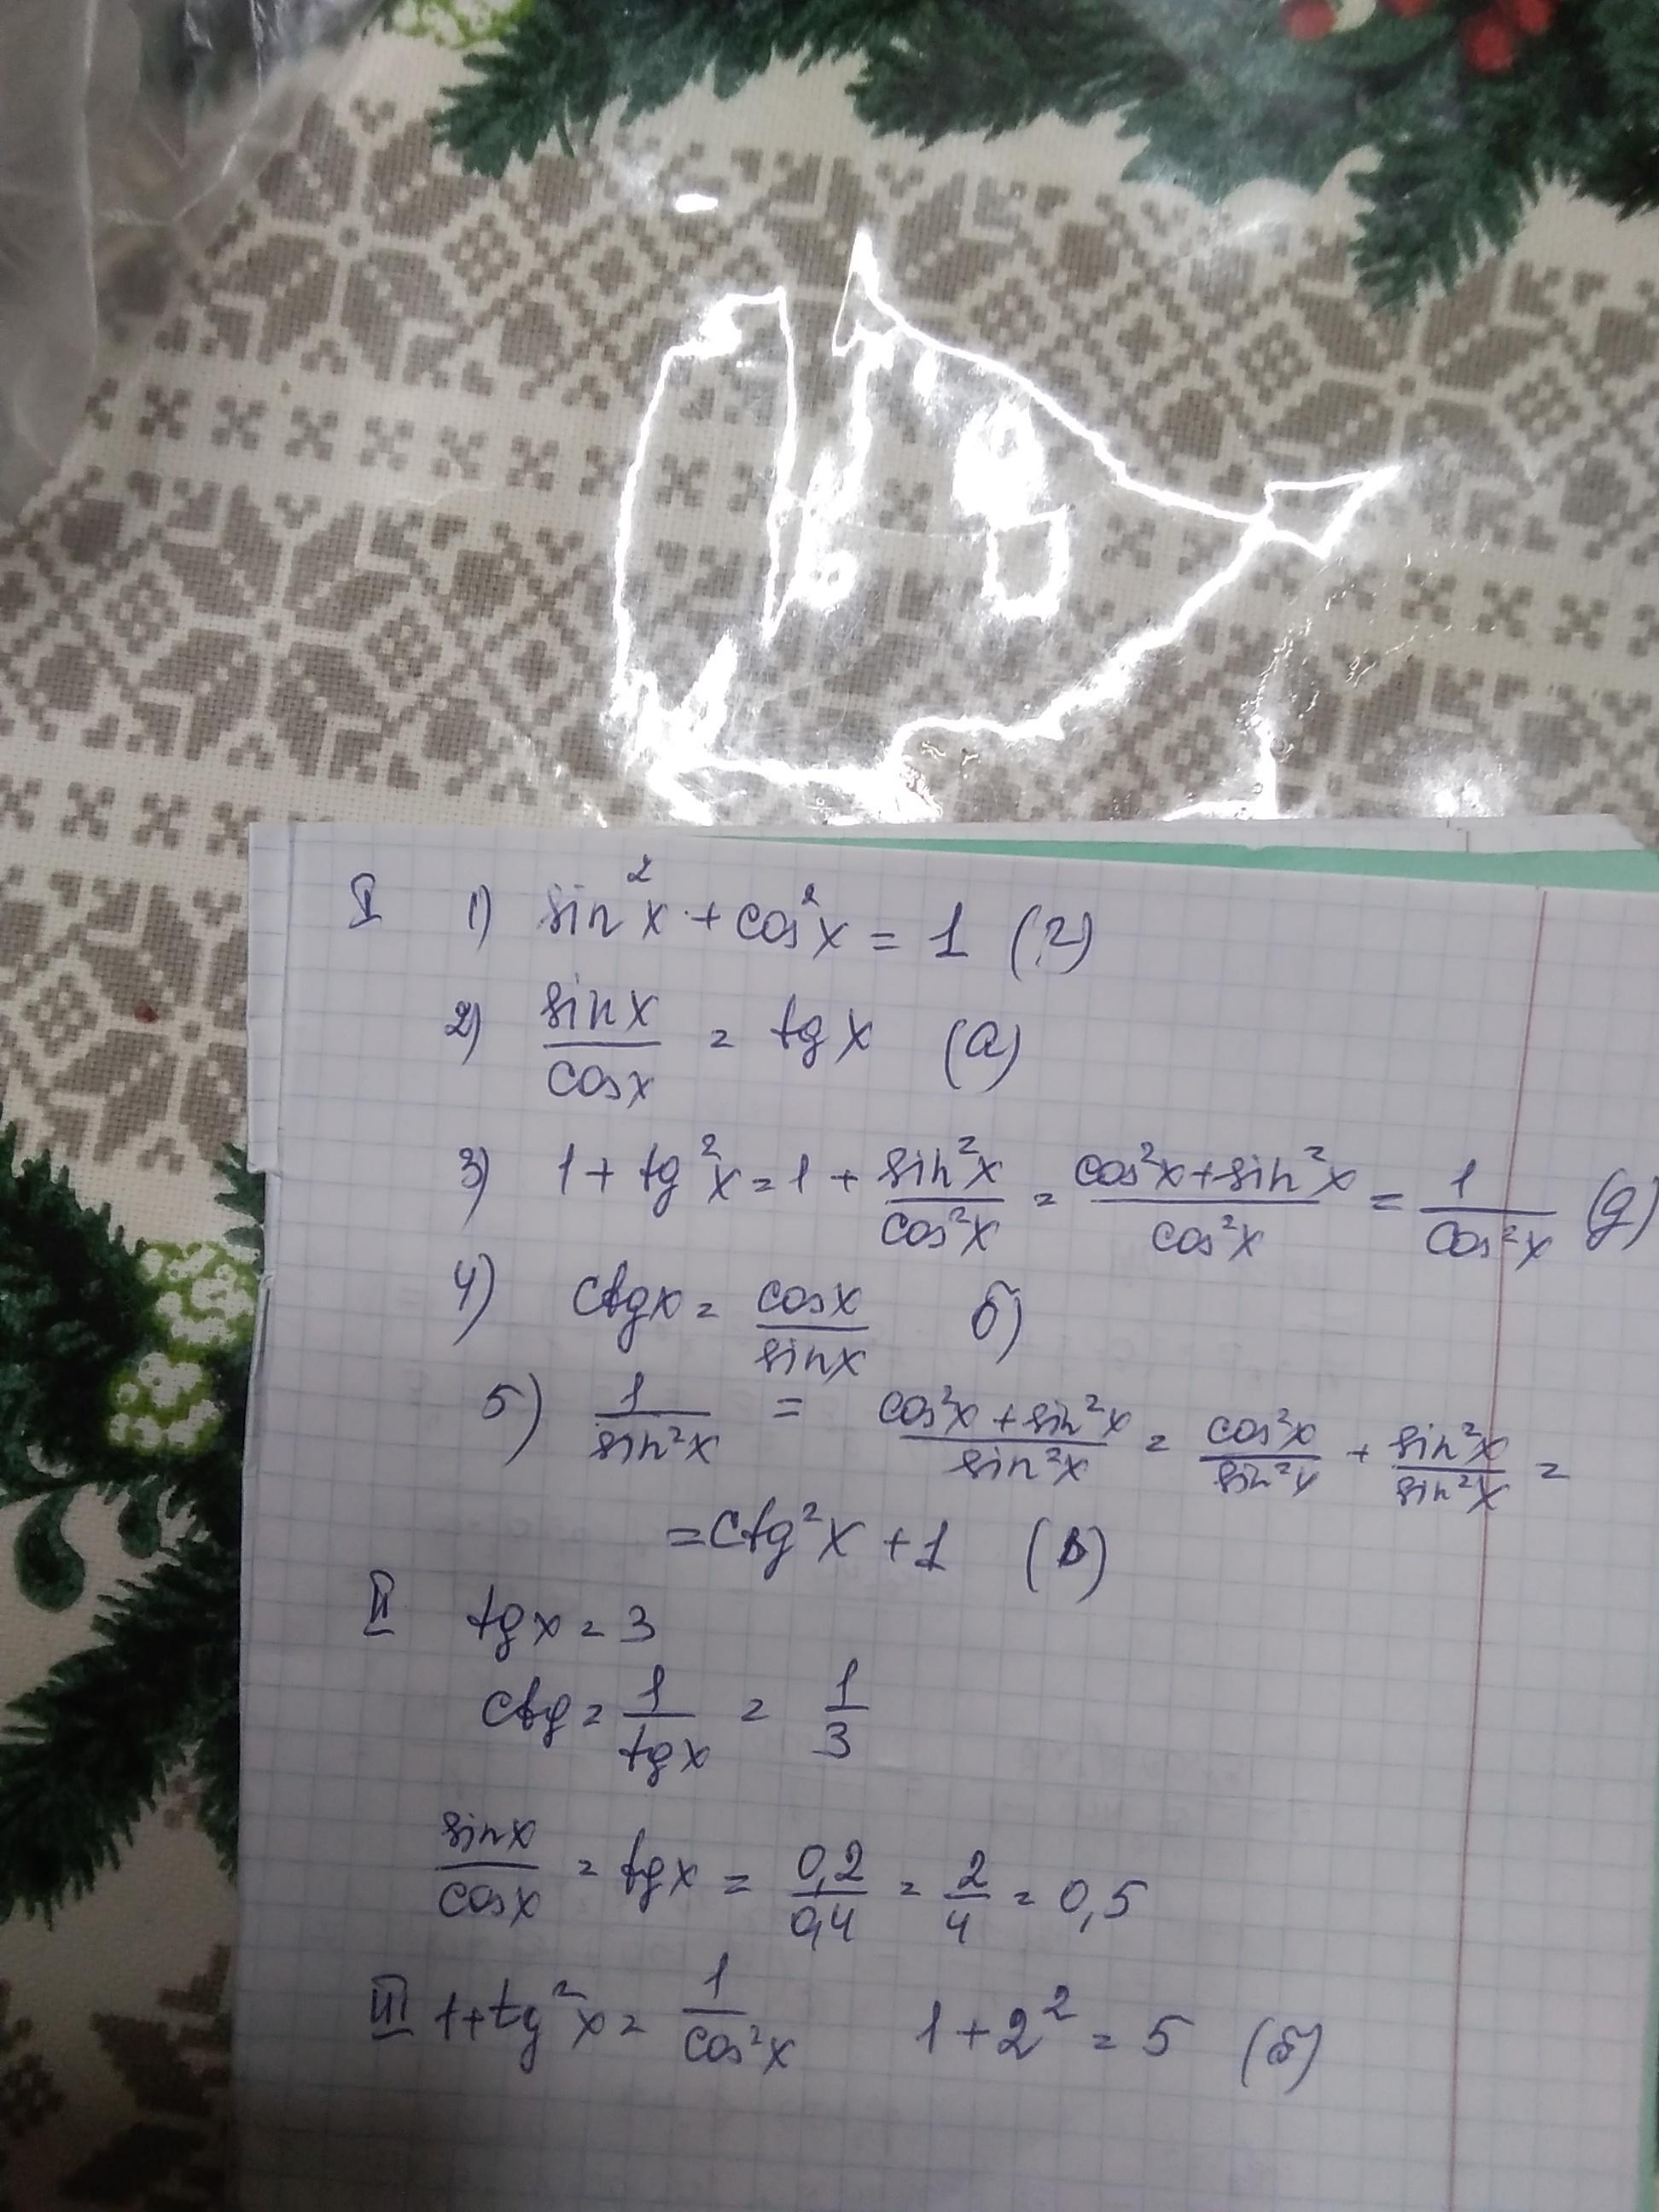 I 1) sin²x + cos²x = 1 (г)
2) sinx/cosx = tgx (а)
3) 1 + tg²x = 1 + sin²x/cos²x = cos²x + sin²x/cos²x = 1/cos²x (д)
4) ctgx = cosx/sinx б)
5) 1/sin²x = cos²x + sin²x/sin²x = cos²x/sin²x + sin²x/sin²x =
= ctg²x + 1 (в)
II tgx = 3
ctg = 1/tgx = 1/3
sinx/cosx = tgx = 0,2/0,4 = 2/4 = 0,5
III 1 + tg²x = 1/cos²x 1 + 2² = 5 (б)